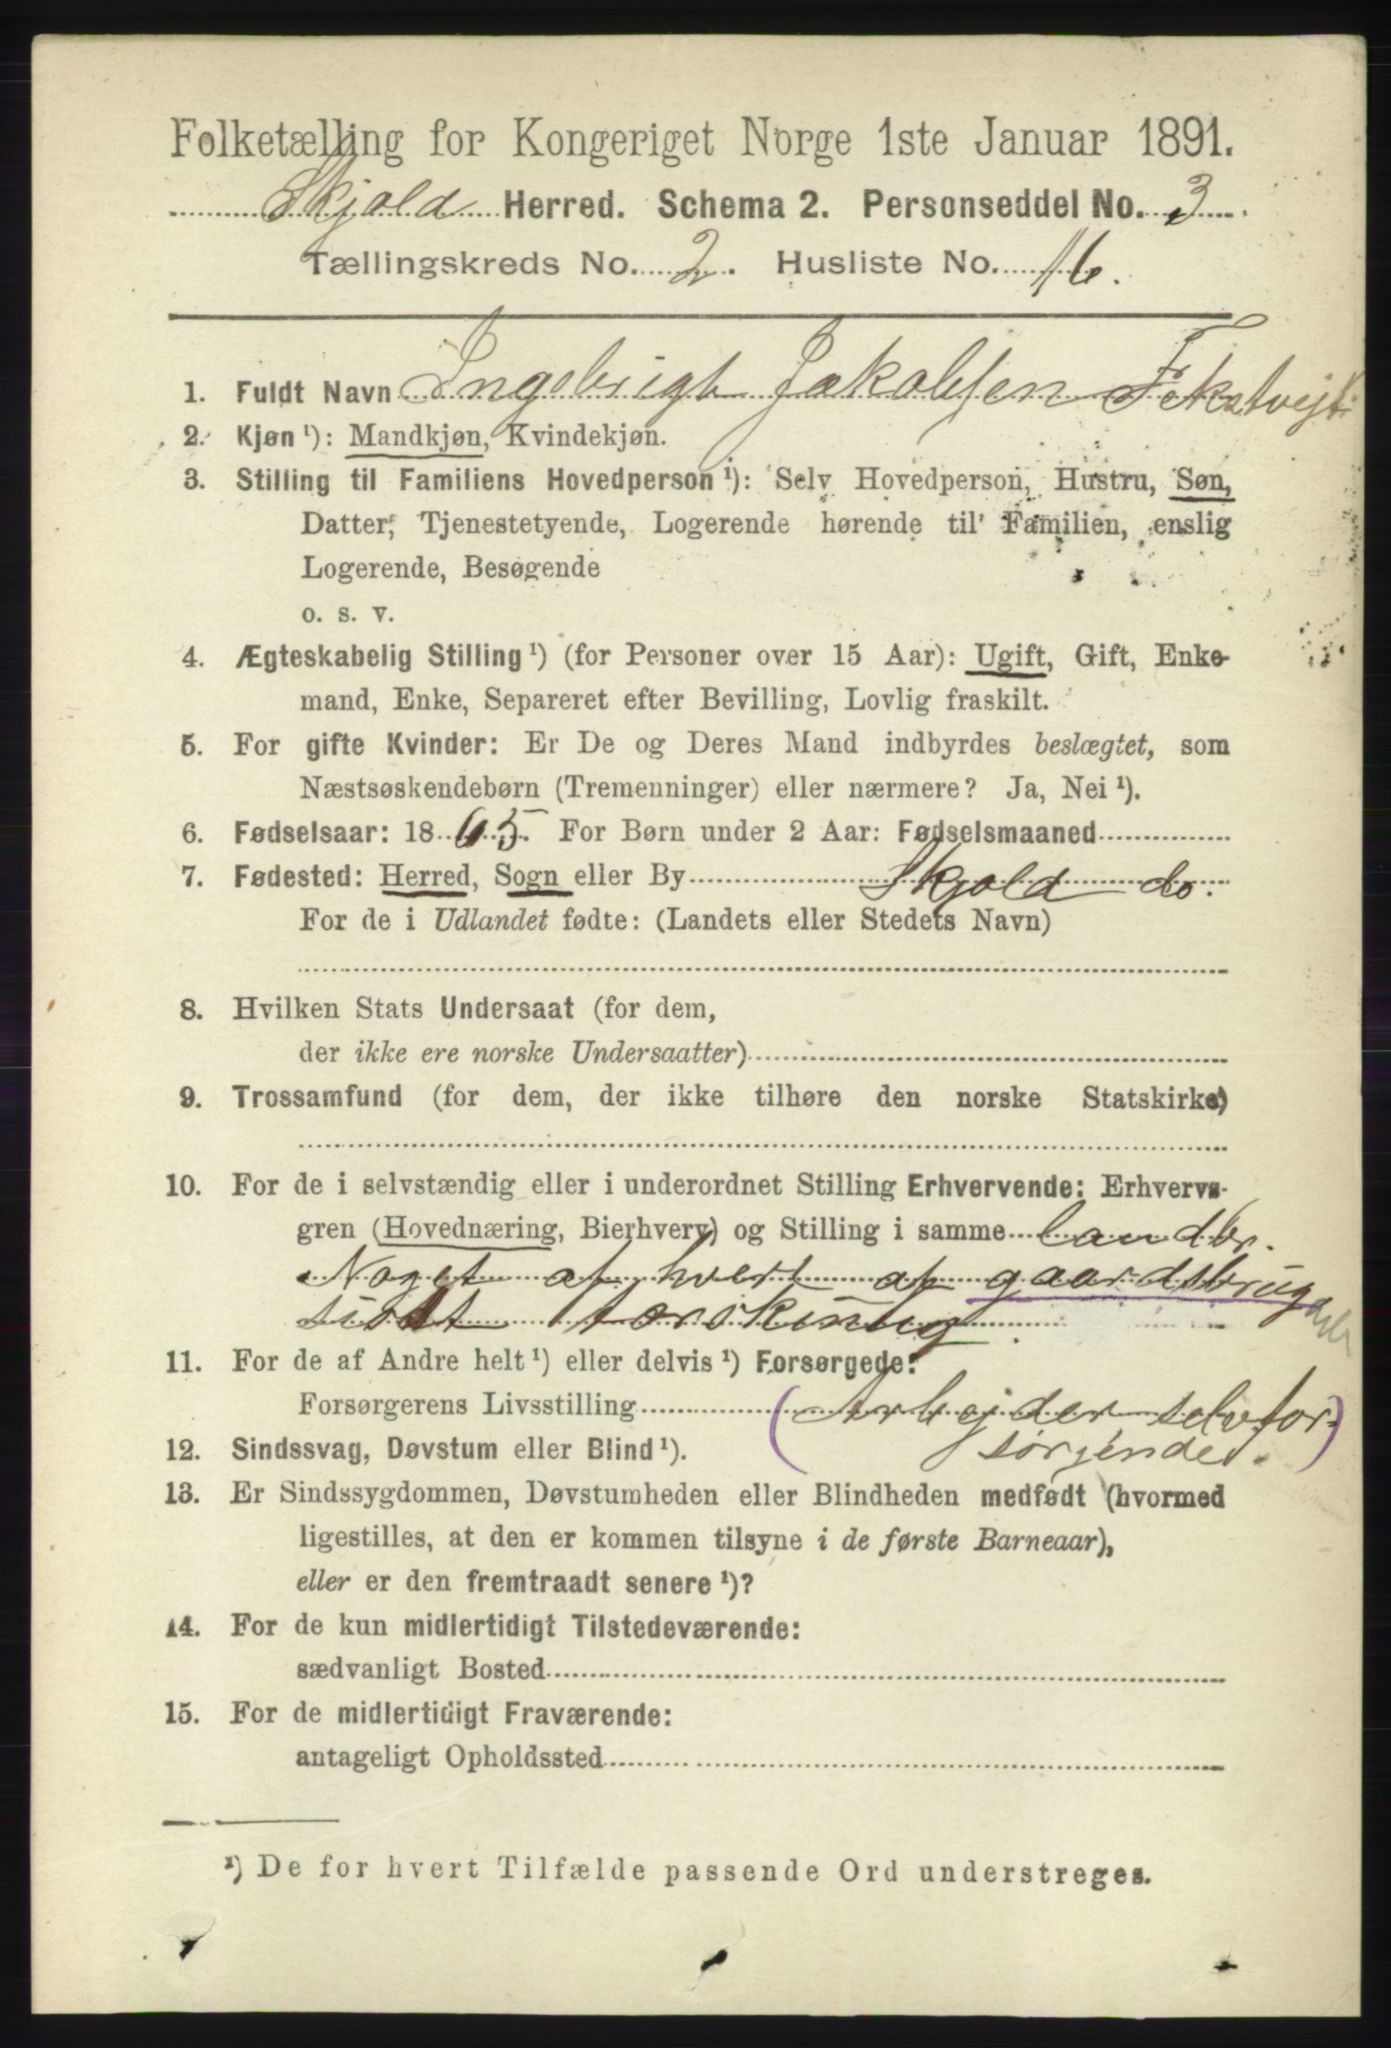 Folketælling for Kongeriget Norge 1ste Januar 1891.
Skjold Herred. Schema 2. Personseddel No. 3.
Tællingskreds No. 2. Husliste No. 16.
1. Fuldt Navn Ingebrigt Jakobsen Frkstvejt
2. Kjøn ¹): Mandkjøn, Kvindekjøn.
3. Stilling til Familiens Hovedperson ¹): Selv Hovedperson, Hustru, Søn,
Datter, Tjenestetyende, Logerende hørende til Familien, enslig
Logerende, Besøgende
o. s. v.
4. Ægteskabelig Stilling ¹) (for Personer over 15 Aar): Ugift, Gift, Enke-
mand, Enke, Separeret efter Bevilling, Lovlig fraskilt.
5. For gifte Kvinder: Er De og Deres Mand indbyrdes beslægtet, som
Næstsøskendebørn (Tremenninger) eller nærmere? Ja, Nei ¹).
6. Fødselsaar: 1865. For Børn under 2 Aar: Fødselsmaaned
7. Fødested: Herred, Sogn eller By Skjold do.
For de i Udlandet fødte: (Landets eller Stedets Navn)
8. Hvilken Stats Undersaat (for dem,
der ikke ere norske Undersaatter)
9. Trossamfund (for dem, der ikke tilhøre den norske Statskirke)
10. For de i selvstændig eller i underordnet Stilling Erhvervende: Erhvervs-
gren (Hovednæring, Bierhverv) og Stilling i samme landbr.
Noget af hvert af gaardsbrug
sidst tærskning
11. For de af Andre helt ¹) eller delvis ¹) Forsørgede:
Forsørgerens Livsstilling (Arbejder selvfor-
sørgende.)
12. Sindssvag, Døvstum eller Blind ¹).
13. Er Sindssygdommen, Døvstumheden eller Blindheden medfødt (hvormed
ligestilles, at den er kommen tilsyne i de første Barneaar),
eller er den fremtraadt senere ¹)?
14. For de kun midlertidigt Tilstedeværende:
sædvanligt Bosted
15. For de midlertidigt Fraværende:
antageligt Opholdssted
¹) De for hvert Tilfælde passende Ord understreges.